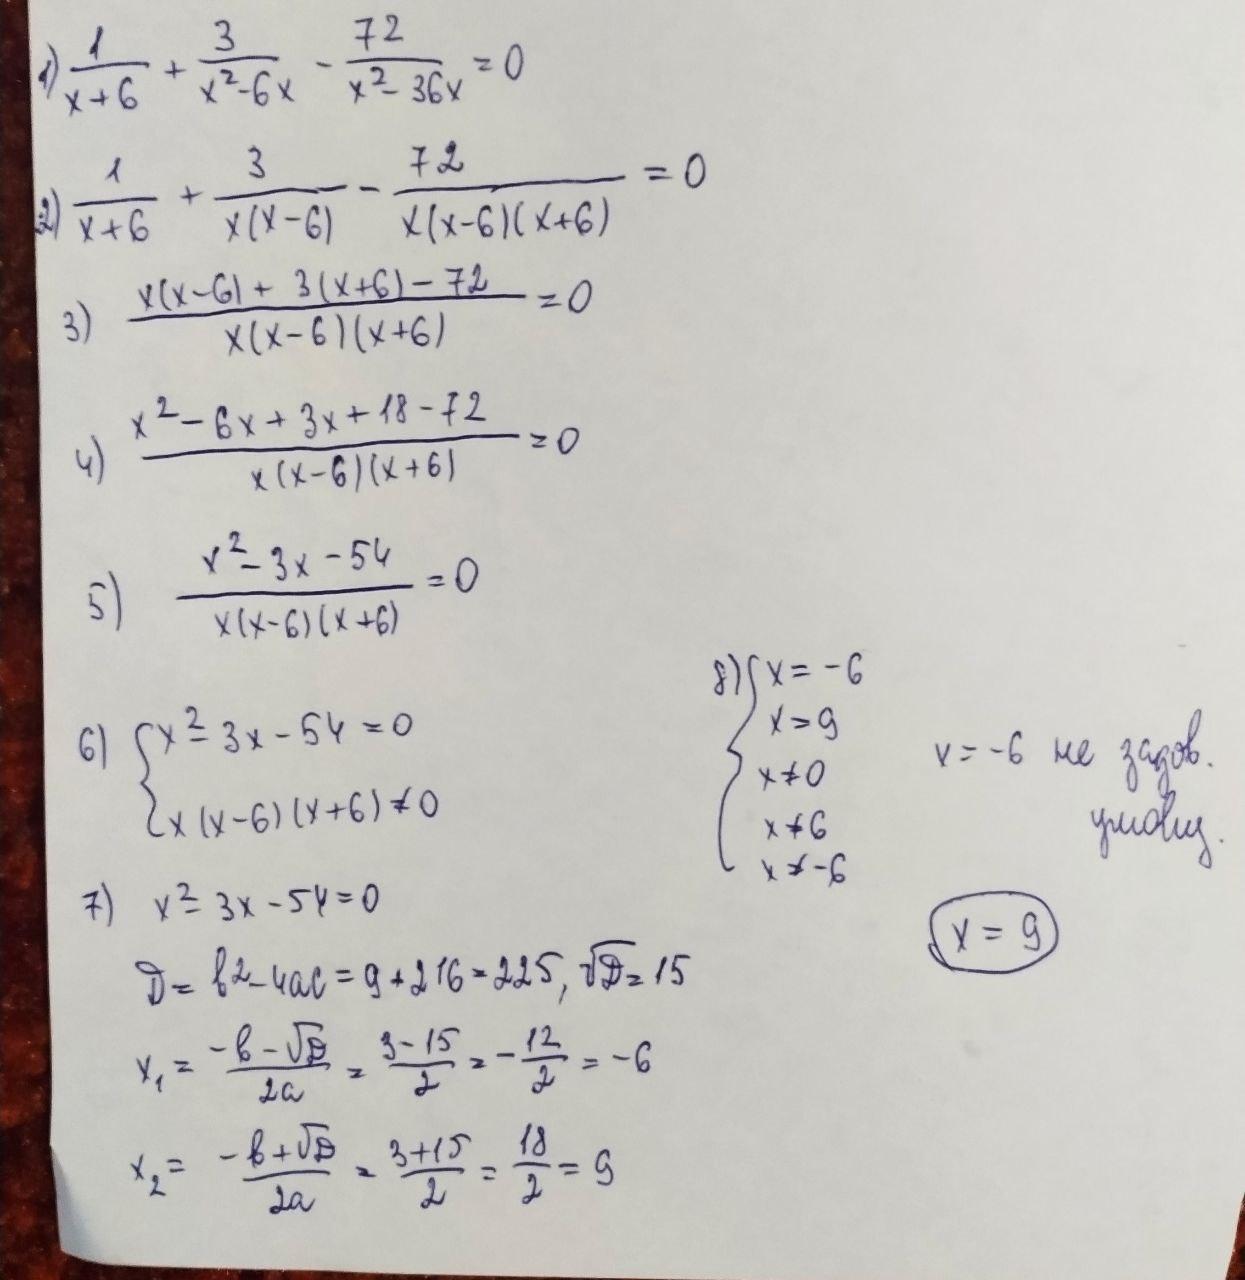 1) 1/(x+6) + 3/(x²-6x) - 72/(x²-36x) = 0
2) 1/(x+6) + 3/(x(x-6)) - 72/(x(x-6)(x+6)) = 0
3) (x(x-6) + 3(x+6) - 72)/(x(x-6)(x+6)) = 0
4) (x² - 6x + 3x + 18 - 72)/(x(x-6)(x+6)) = 0
5) (x² - 3x - 54)/(x(x-6)(x+6)) = 0
6) { x² - 3x - 54 = 0
x(x-6)(x+6) ≠ 0
7) x² - 3x - 54 = 0
D = b² - 4ac = 9 + 216 = 225, √D = 15
x₁ = (-b - √D)/2a = (3 - 15)/2 = -12/2 = -6
x₂ = (-b + √D)/2a = (3 + 15)/2 = 18/2 = 9
8) { x = -6
x = 9
x ≠ 0
x ≠ 6
x ≠ -6
x = -6 не задов.
умову.
x = 9